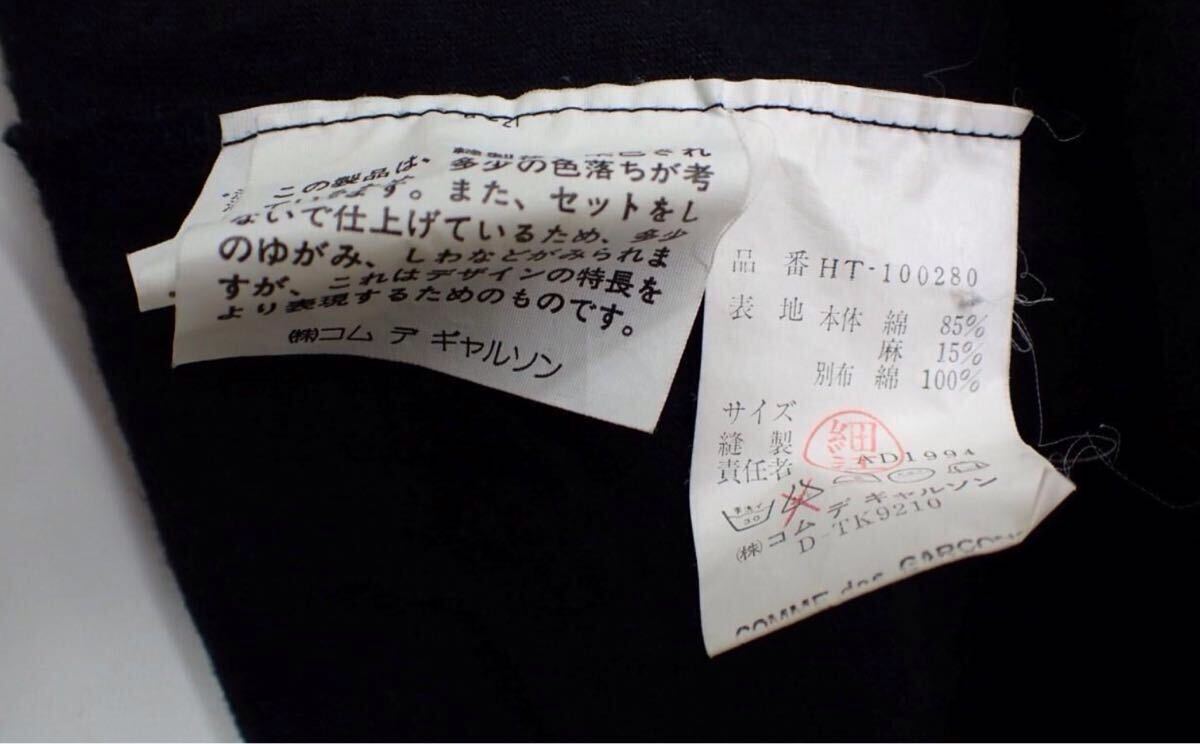 この製品は、縫製
多少の色落ちが考
ます。また、セットをし
ないで仕上げているため、多少
のゆがみ、しわなどがみられま
すが、これはデザインの特長を
より表現するためのものです。
㈱コム デ ギャルソン
品 番 HT-100280
表 地 本体 綿 85%
麻 15%
別布 綿 100%
サイズ
縫 製
責任者
細
AD1994
手洗イ
30
㈱コム デ ギャルソン
D-TK9210
COMME des GARÇONS